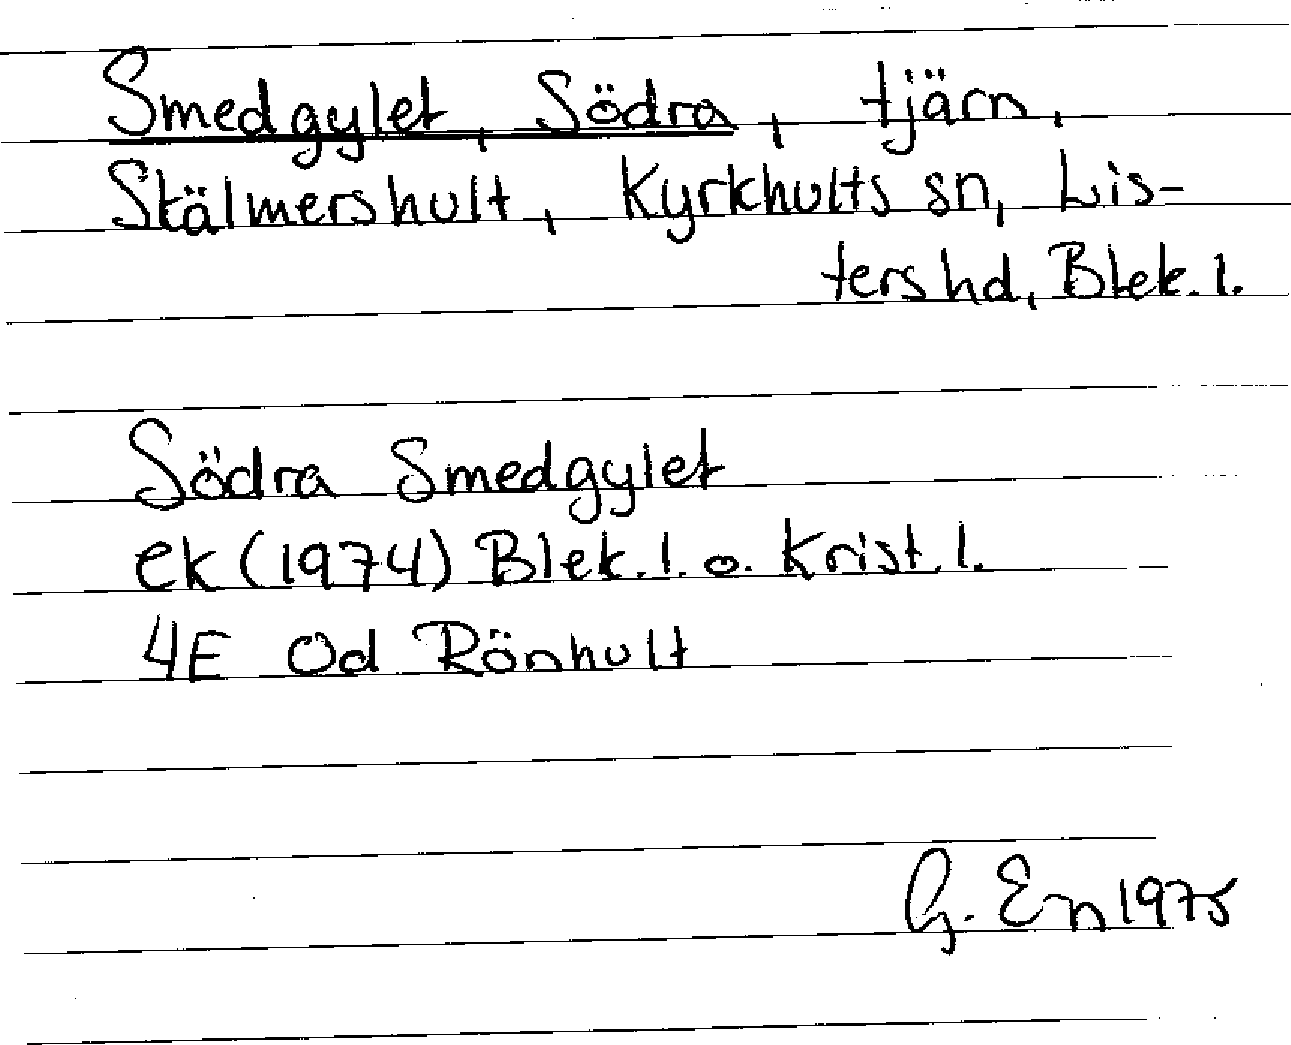 Smedgylet, Södra, tjärn,
Stälmershult, Kyrkhults sn, Lis-
ters hd, Blek. l.
Södra Smedgylet
ek (1974) Blek. l. o. Krist. l.
4E 0d Rönhult
G. En 1975